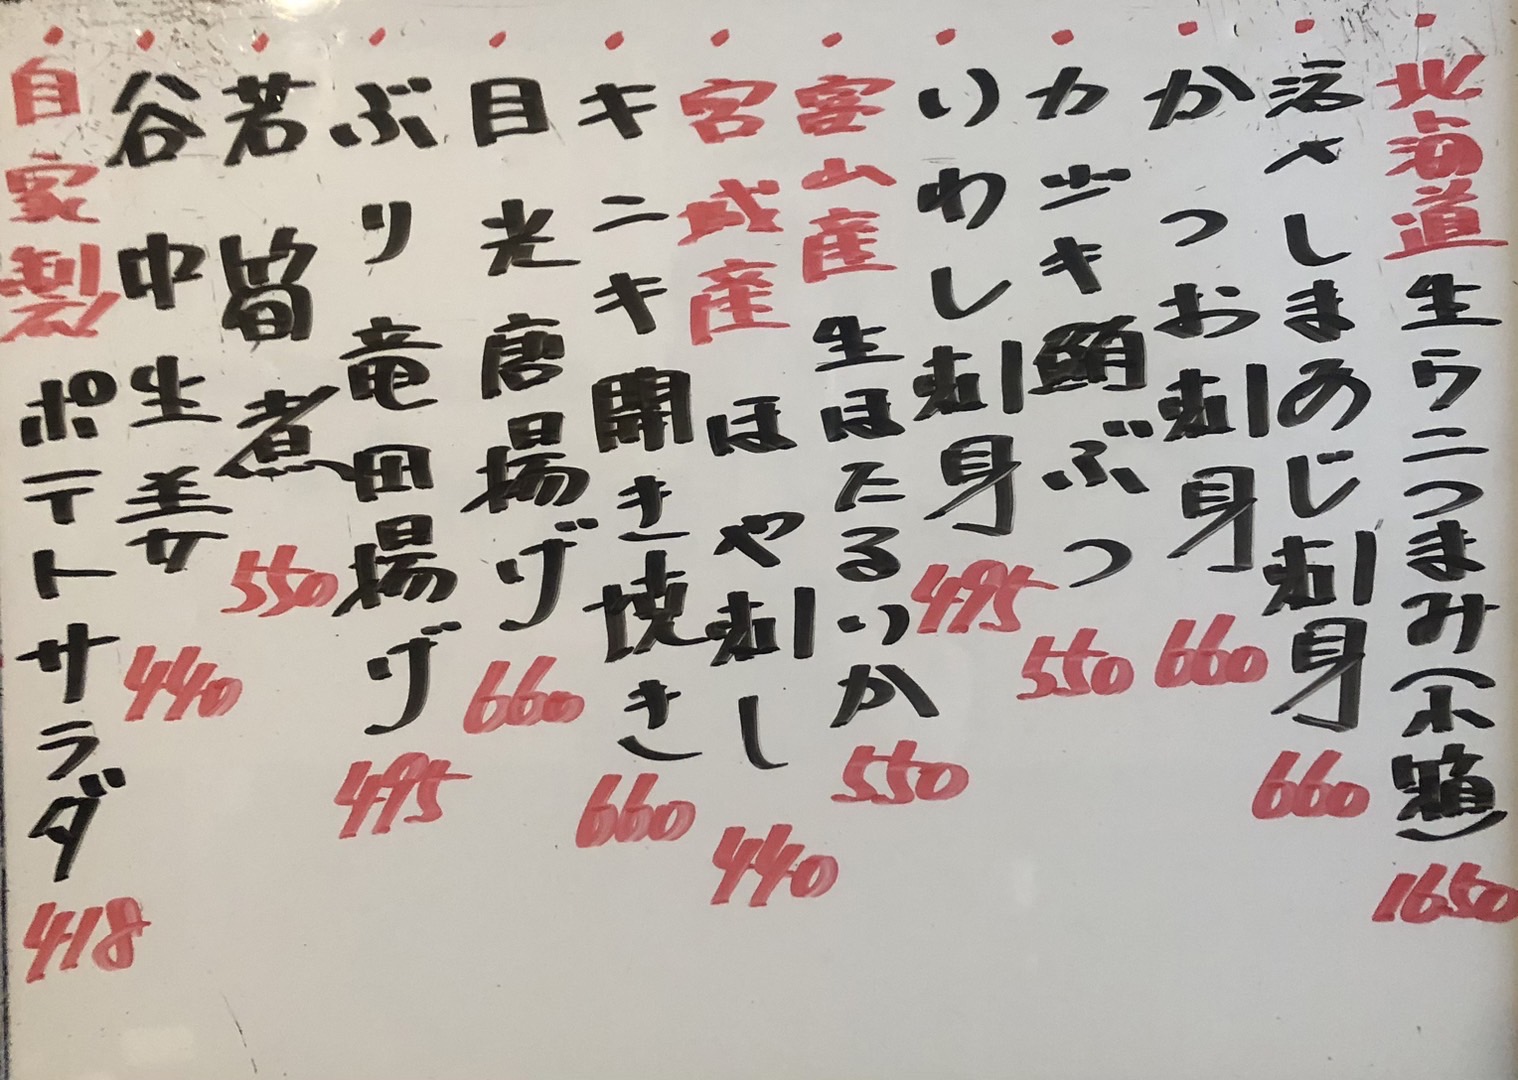 北海道生ウニつまみ 1650
活〆しまあじ刺身 660
かつお刺身 660
カジキ鮪ぶつ 550
いわし刺身 495
富山産生ほたるいか 550
宮城産ほや刺し 440
キンキ開き焼き 660
目光唐揚げ 660
ぶり竜田揚げ 495
若筍煮 550
谷中生姜 440
自家製ポテトサラダ 418